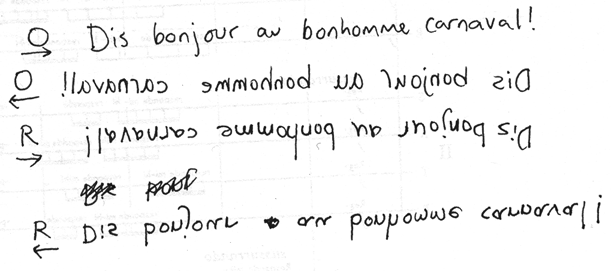 O → Dis bonjour au bonhomme carnaval!
O ← Dis bonjour au bonhomme carnaval!
R → Dis bonjour au bonhomme carnaval!
R ← Dis bonjour au bonhomme carnaval!